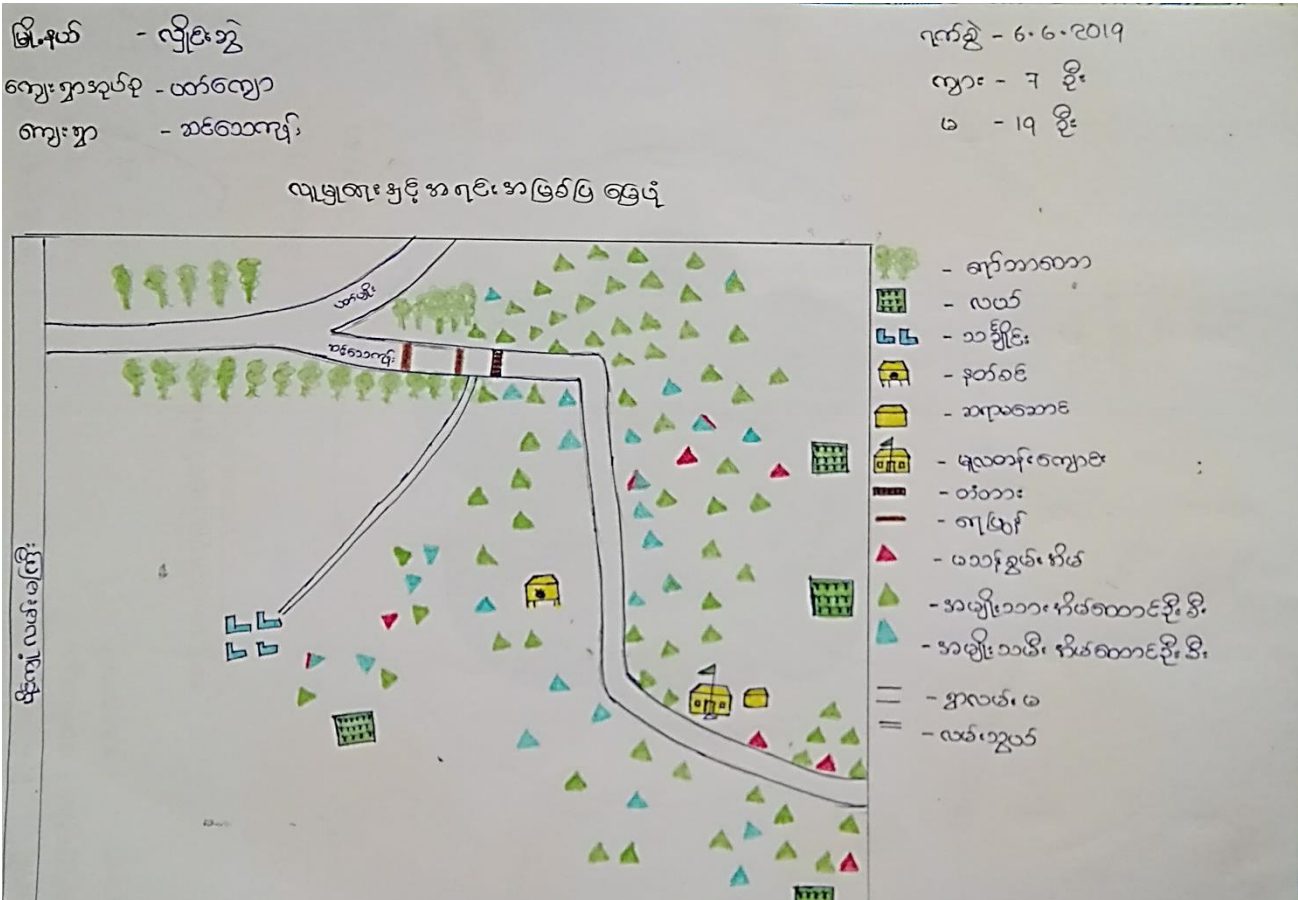 မြို့နယ် - လှိုင်းဘွဲ
ကျေးရွာအုပ်စု - ပတ်ကျော
ကျေးရွာ - ဆင်သေကျန်း
ရက်စွဲ - 6.6.2019
ကျား - 7 ဦး
မ - 19 ဦး
လူမှုရေးနှင့်အရင်းအမြစ်ပြမြေပုံ
ဆင်သေကျန်း
- ရော်ဘာတော
- လယ်
- သင်္ချိုင်း
- နတ်စင်
- ဆရာမဆောင်
- မူလတန်းကျောင်း
- တံတား
- ရေပြွန်
- မသန်စွမ်းအိမ်
- အမျိုးသားအိမ်ထောင်ဦးစီး
- အမျိုးသမီးအိမ်ထောင်ဦးစီး
- ရွာလမ်းမ
- လမ်းသွယ်